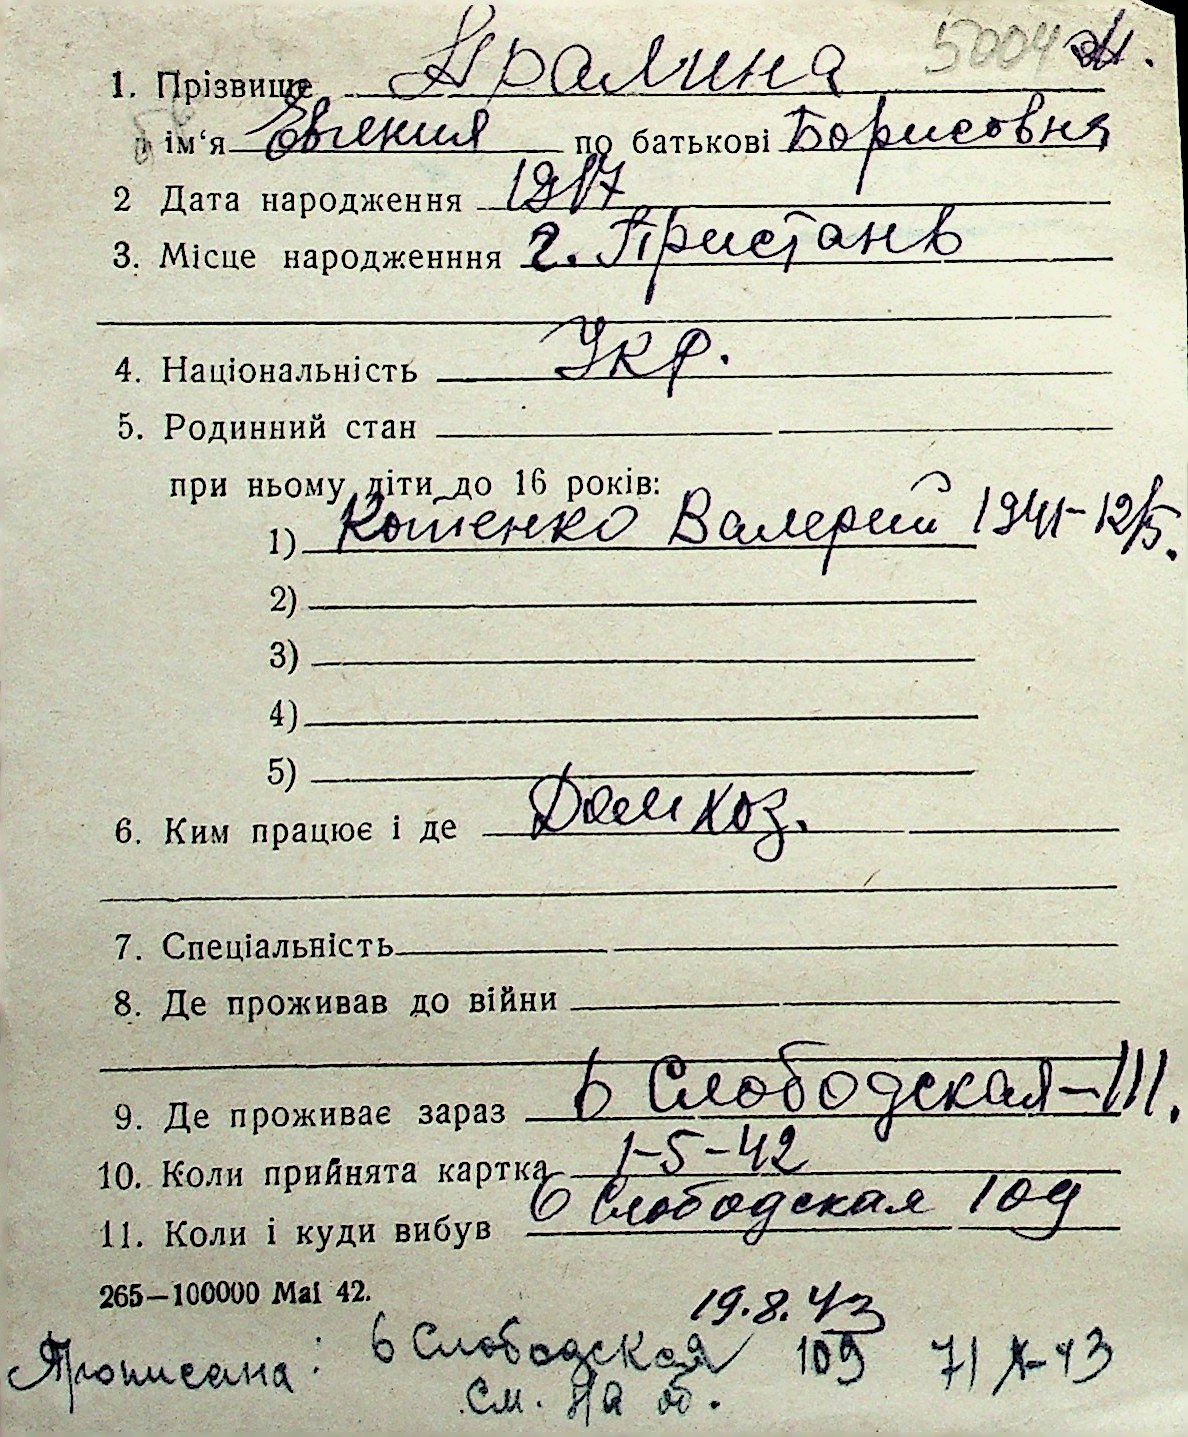 5004
1. Прізвище Пралина
ім‘я Евгения по батькові Борисовна
2 Дата народження 1917
3. Місце народженння г. Пристань
4. Національність Укр.
5. Родинний стан
при ньому діти до 16 років:
1) Котенко Валерий 1941-12/5.
2)
3)
4)
5)
6. Ким працює і де Домхоз.
7. Спеціальність
8. Де проживав до війни
9. Де проживає зараз 6 Слободская-111.
10. Коли прийнята картка 1-5-42
11. Коли і куди вибув 6 Слободская 109
265—100000 Mai 42.
19.8.43
Прописана: 6 Слободская 109 7/X-43
См. на об.